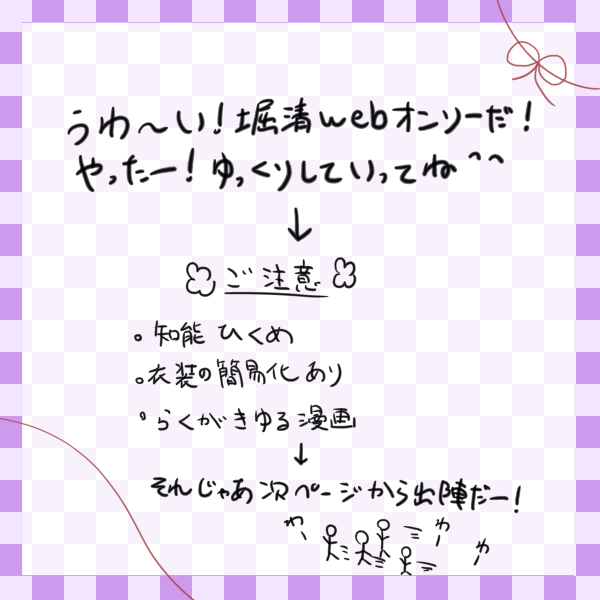 うわ〜い！堀清webオンソーだ！
やったー！ゆっくりしていってね^^
↓
ご注意
。知能 ひくめ
。衣装の簡易化 あり
。らくがきゆる漫画
↓
それじゃあ次ページから出陣だー！
わー
わー
わー